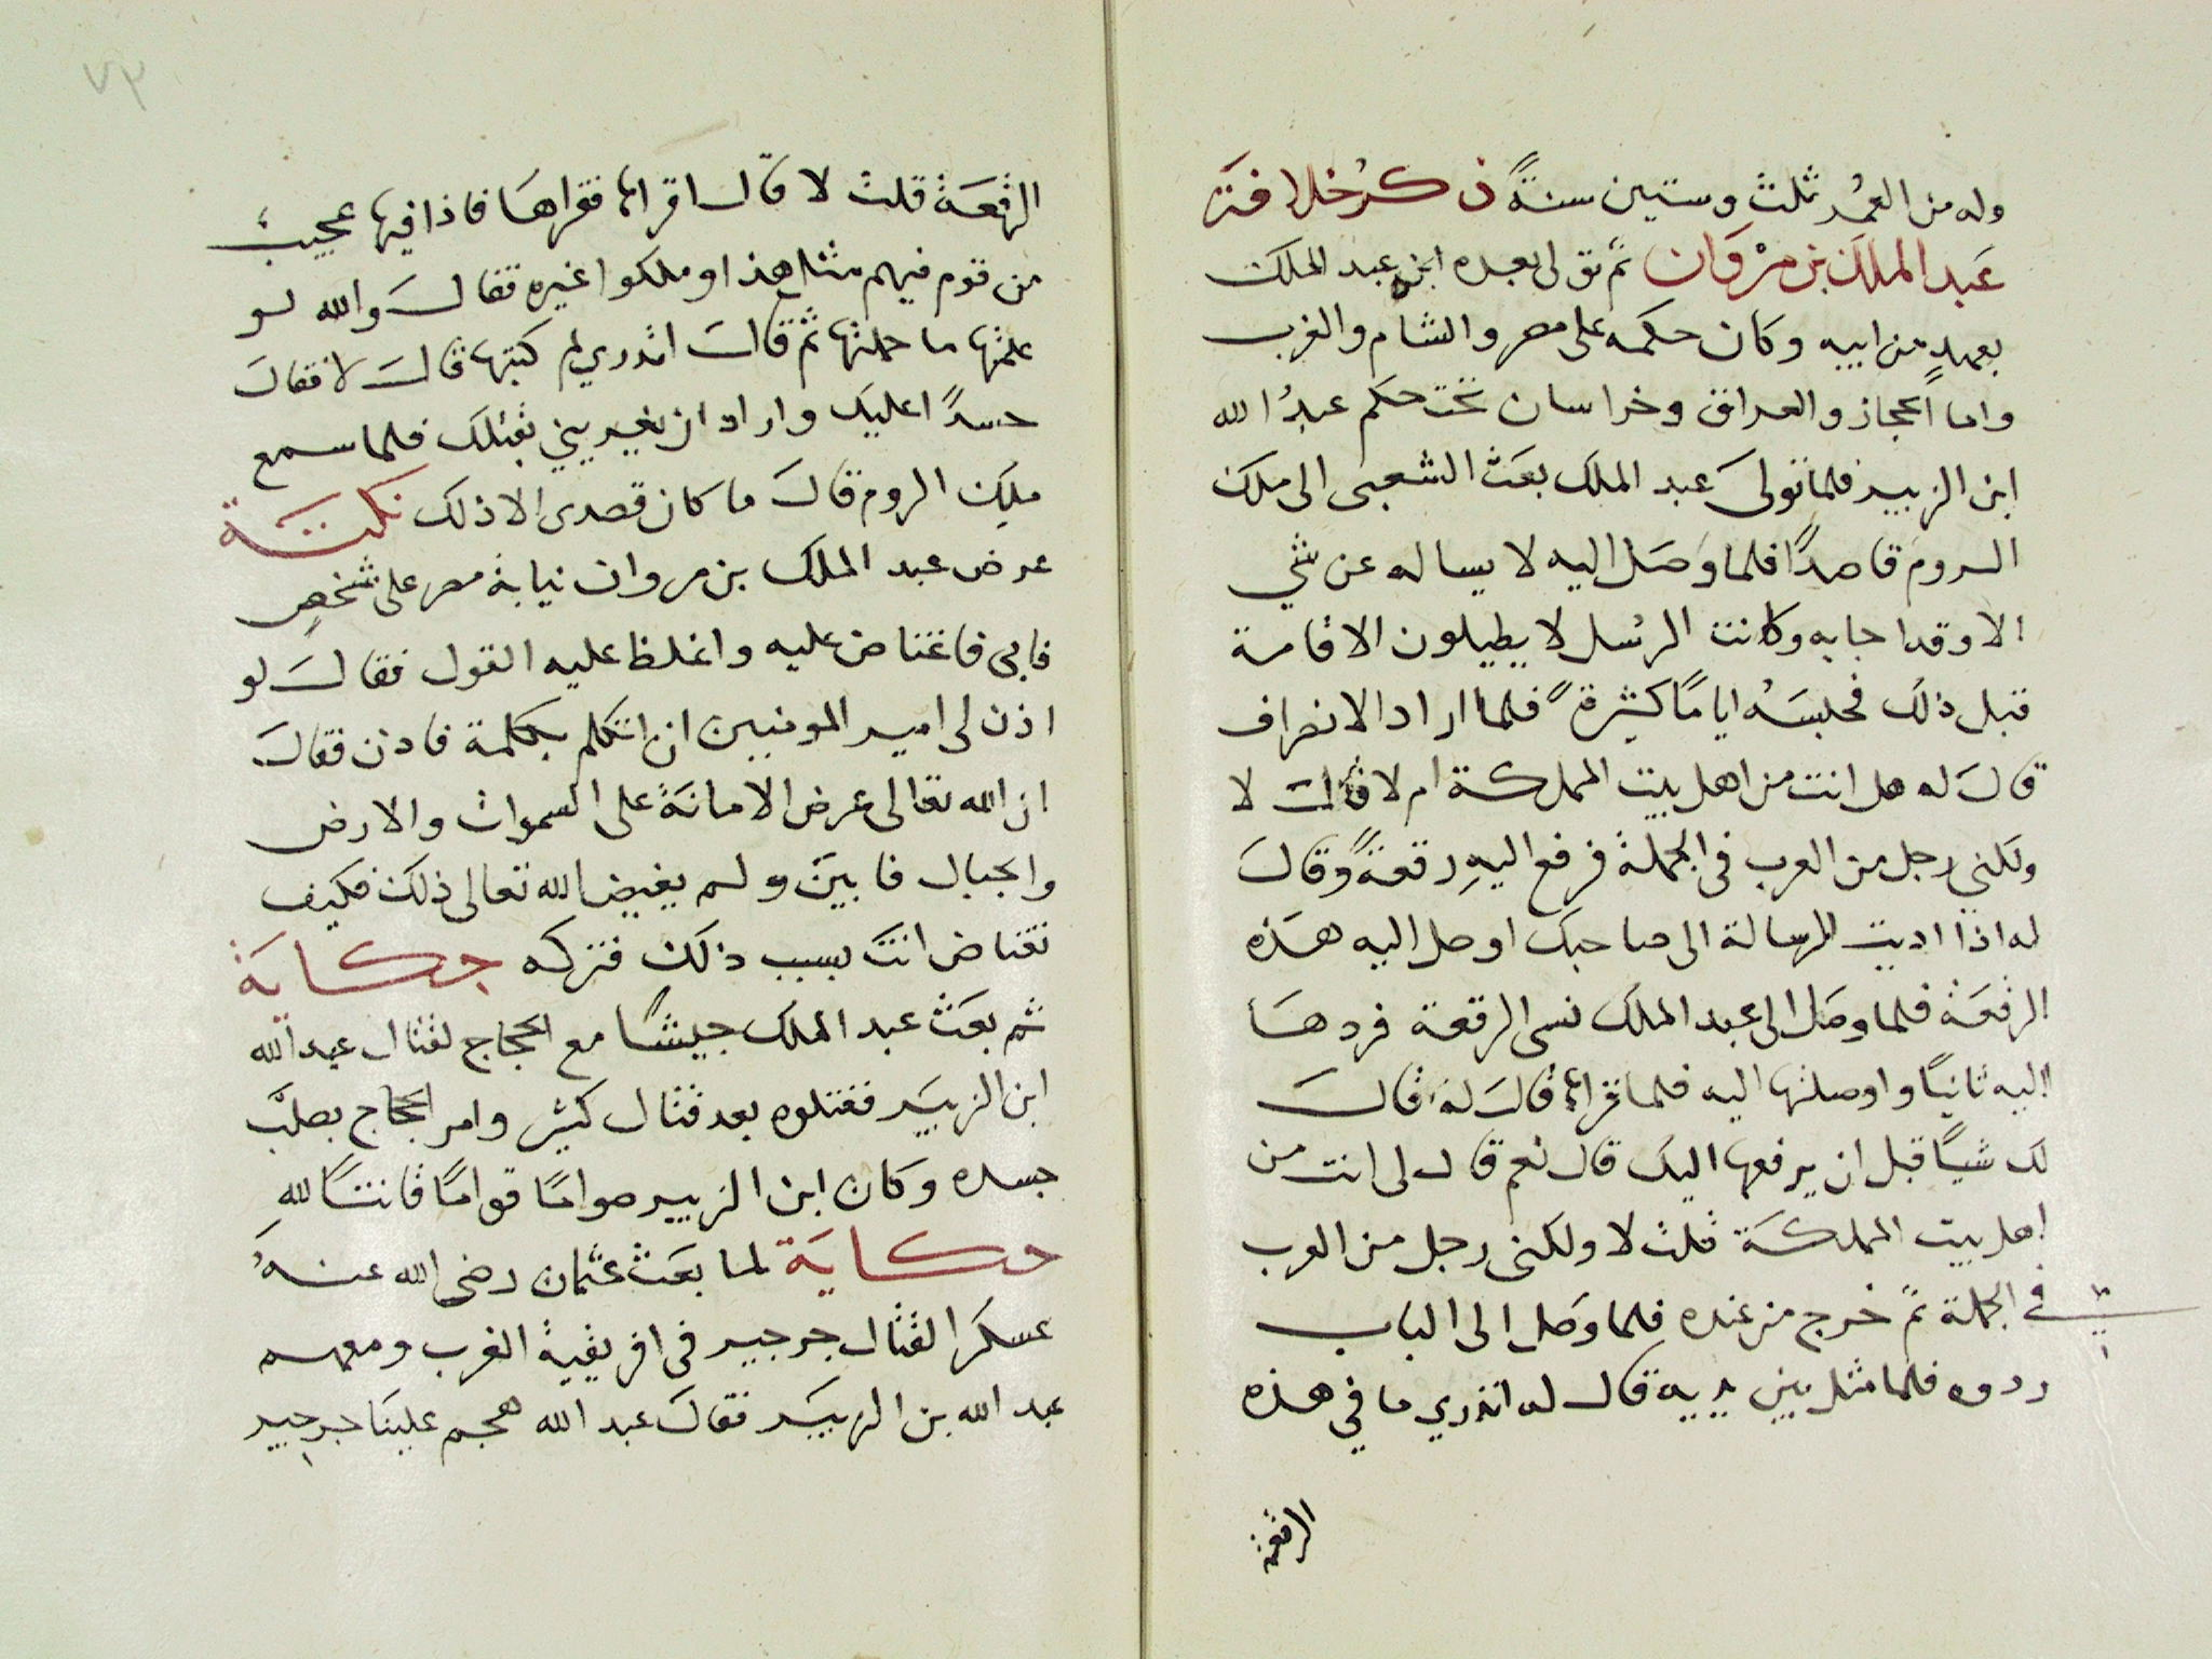 وله من العمر ثلث وستين سنةً ذكرُ خلافة
عَبد الملك بن مرْوَان ثم تولى بعده ابنه عبد الملك
بعهدٍ من ابيه وكان حكمه على مصر والشام والغرب
واما الحجاز والعراق وخراسان تحت حكم عبدُ الله
ابن الزبير فلما تولىَ عبد الملك بعَث الشعبى الى ملك
الروم قاصدًا فلما وَصَل اليه لا يساله عن شي
الا وقد اجابه وكانت الرسُل لا يطيلون الاقامة
قبل ذلك فحبسَهُ ايامًا كثيرةً فلما اراد الانصراف
قالَ له هل انت من اهل بيت المملكة ام لا قال لا
ولكني رجل من العرب فى الجملة فرفع اليهِ رقعةً وقالَ
له اذا اديت الرسالة الى صاحبك اوصل اليه هذه
الرقعَة فلما وصَل الى عبد الملك نسى الرقعة فردهَا
اليه ثانيًا واوصلتها اليه فلما قراها قالَ له قالَ
لك شيًا قبل ان يرفعها اليك قال نعم قال لى انت من
اهل بيت المملكَة قلت لا ولكنى رجل من العرب
فى الجملة ثم خرج من عنده فلما وَصَل الى الباب
ردوه فلما مثل بين يديه قال له اتدري ما في هذه
الرقعة
٧٣
الرقعَة قلت لا قال اقراها فقراهَا فاذا فيها عجيبٌ
من قوم فيهم مثل هذا وملكوا غيره فقالَ والله لو
علمتها ما حملتها ثم قالَ اتدري لم كتبها قالَ لا فقالَ
حسدًا عليك واراد ان يغريني بقتلك فلما سمع
ملِك الروم قالَ ما كان قصدى الا ذلك نكتَة
عرض عبد الملك بن مروان نيابة مصر على شخصٍ
فابى فاغتاض عليه واغلظ عليه القول فقالَ لو
اذن لى امير المومنين ان اتكلم بكلمة فاذن فقالَ
ان الله تعالى عرض الامانَة على السموات والارض
والجبال فابينَ ولم يغيض الله تعالى ذلك فكيف
تغتاض انتَ بسبب ذلك فتركه حكايَة
ثم بعَث عبد الملك جيشًا مع الحجاج لقتال عبد الله
ابن الزبَير فقتلوه بعد قتال كثير وامر الحجاج بصلب
جسده وكان ابن الزبير صوامًا قوامًا قانتًا للهِ
حكايَة لما بعَث عثمان رضى الله عنهُ
عسكرا لقتال جرجير فى افريقية الغرب ومعهم
عبد الله بن الزبَير فقالَ عبد الله هجم علينَا جرجير